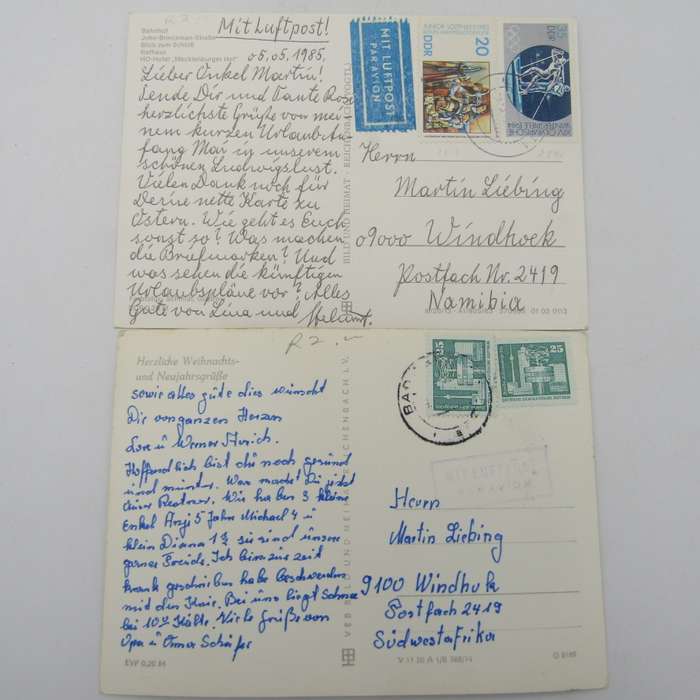 R 2.-
Mit Luftpost!
Bahnhof
John-Brinckman-Straße
Blick zum Schloß
Rathaus
HO-Hotel „Mecklenburger Hof“
05.05.1985.
Lieber Onkel Martin!
Sende Dir und Tante Rosi
herzlichste Grüße von mei
nem kurzen Urlaub An-
fang Mai in unserem
schönen Ludwigslust.
Vielen Dank noch für
Deine nette Karte zu
Ostern. Wie geht es Euch
sonst so? Was machen
die Briefmarken? Und
was sehen die künftigen
Urlaubspläne vor? Alles
Gute von Lina und Helmut.
BILD UND HEIMAT · REICHENBACH (VOGTL)
MIT LUFTPOST
PAR AVION
20
DDR
35
DDR
XIV. OLYMPISCHE
WINTERSPIELE 1984
Herrn
Martin Liebing
09000 Windhoek
Postfach Nr. 2419
Namibia
01 03 0113
R 2.-
Herzliche Weihnachts-
und Neujahrsgrüße
sowie alles gute dies wünscht
Dir von ganzen Herzen
Lore u Werner
Hoffendlich bist du noch gesund
und munter. Was machst Du jetzt
Rentner. Wir haben 3 kleine
Enkel Anji 5 Jahre Michael 4 u
klein Diana 1½ sie sind unsere
ganze Freude. Ich bin zur zeit
krank geschrieben habe Beschwerden
mit den Knie. Bei uns liegt Schnee
bei 10° Kälte. Viele Grüße von
Opa u Oma Schäfer
EVP 0,20 M
VEB BILD UND HEIMAT REICHENBACH I. V.
25
25
BAD
MIT LUFTPOST
PAR AVION
Herrn
Martin Liebing
9100 Windhuk
Postfach 2419
Südwestafrika
V 11 50 A 1/B